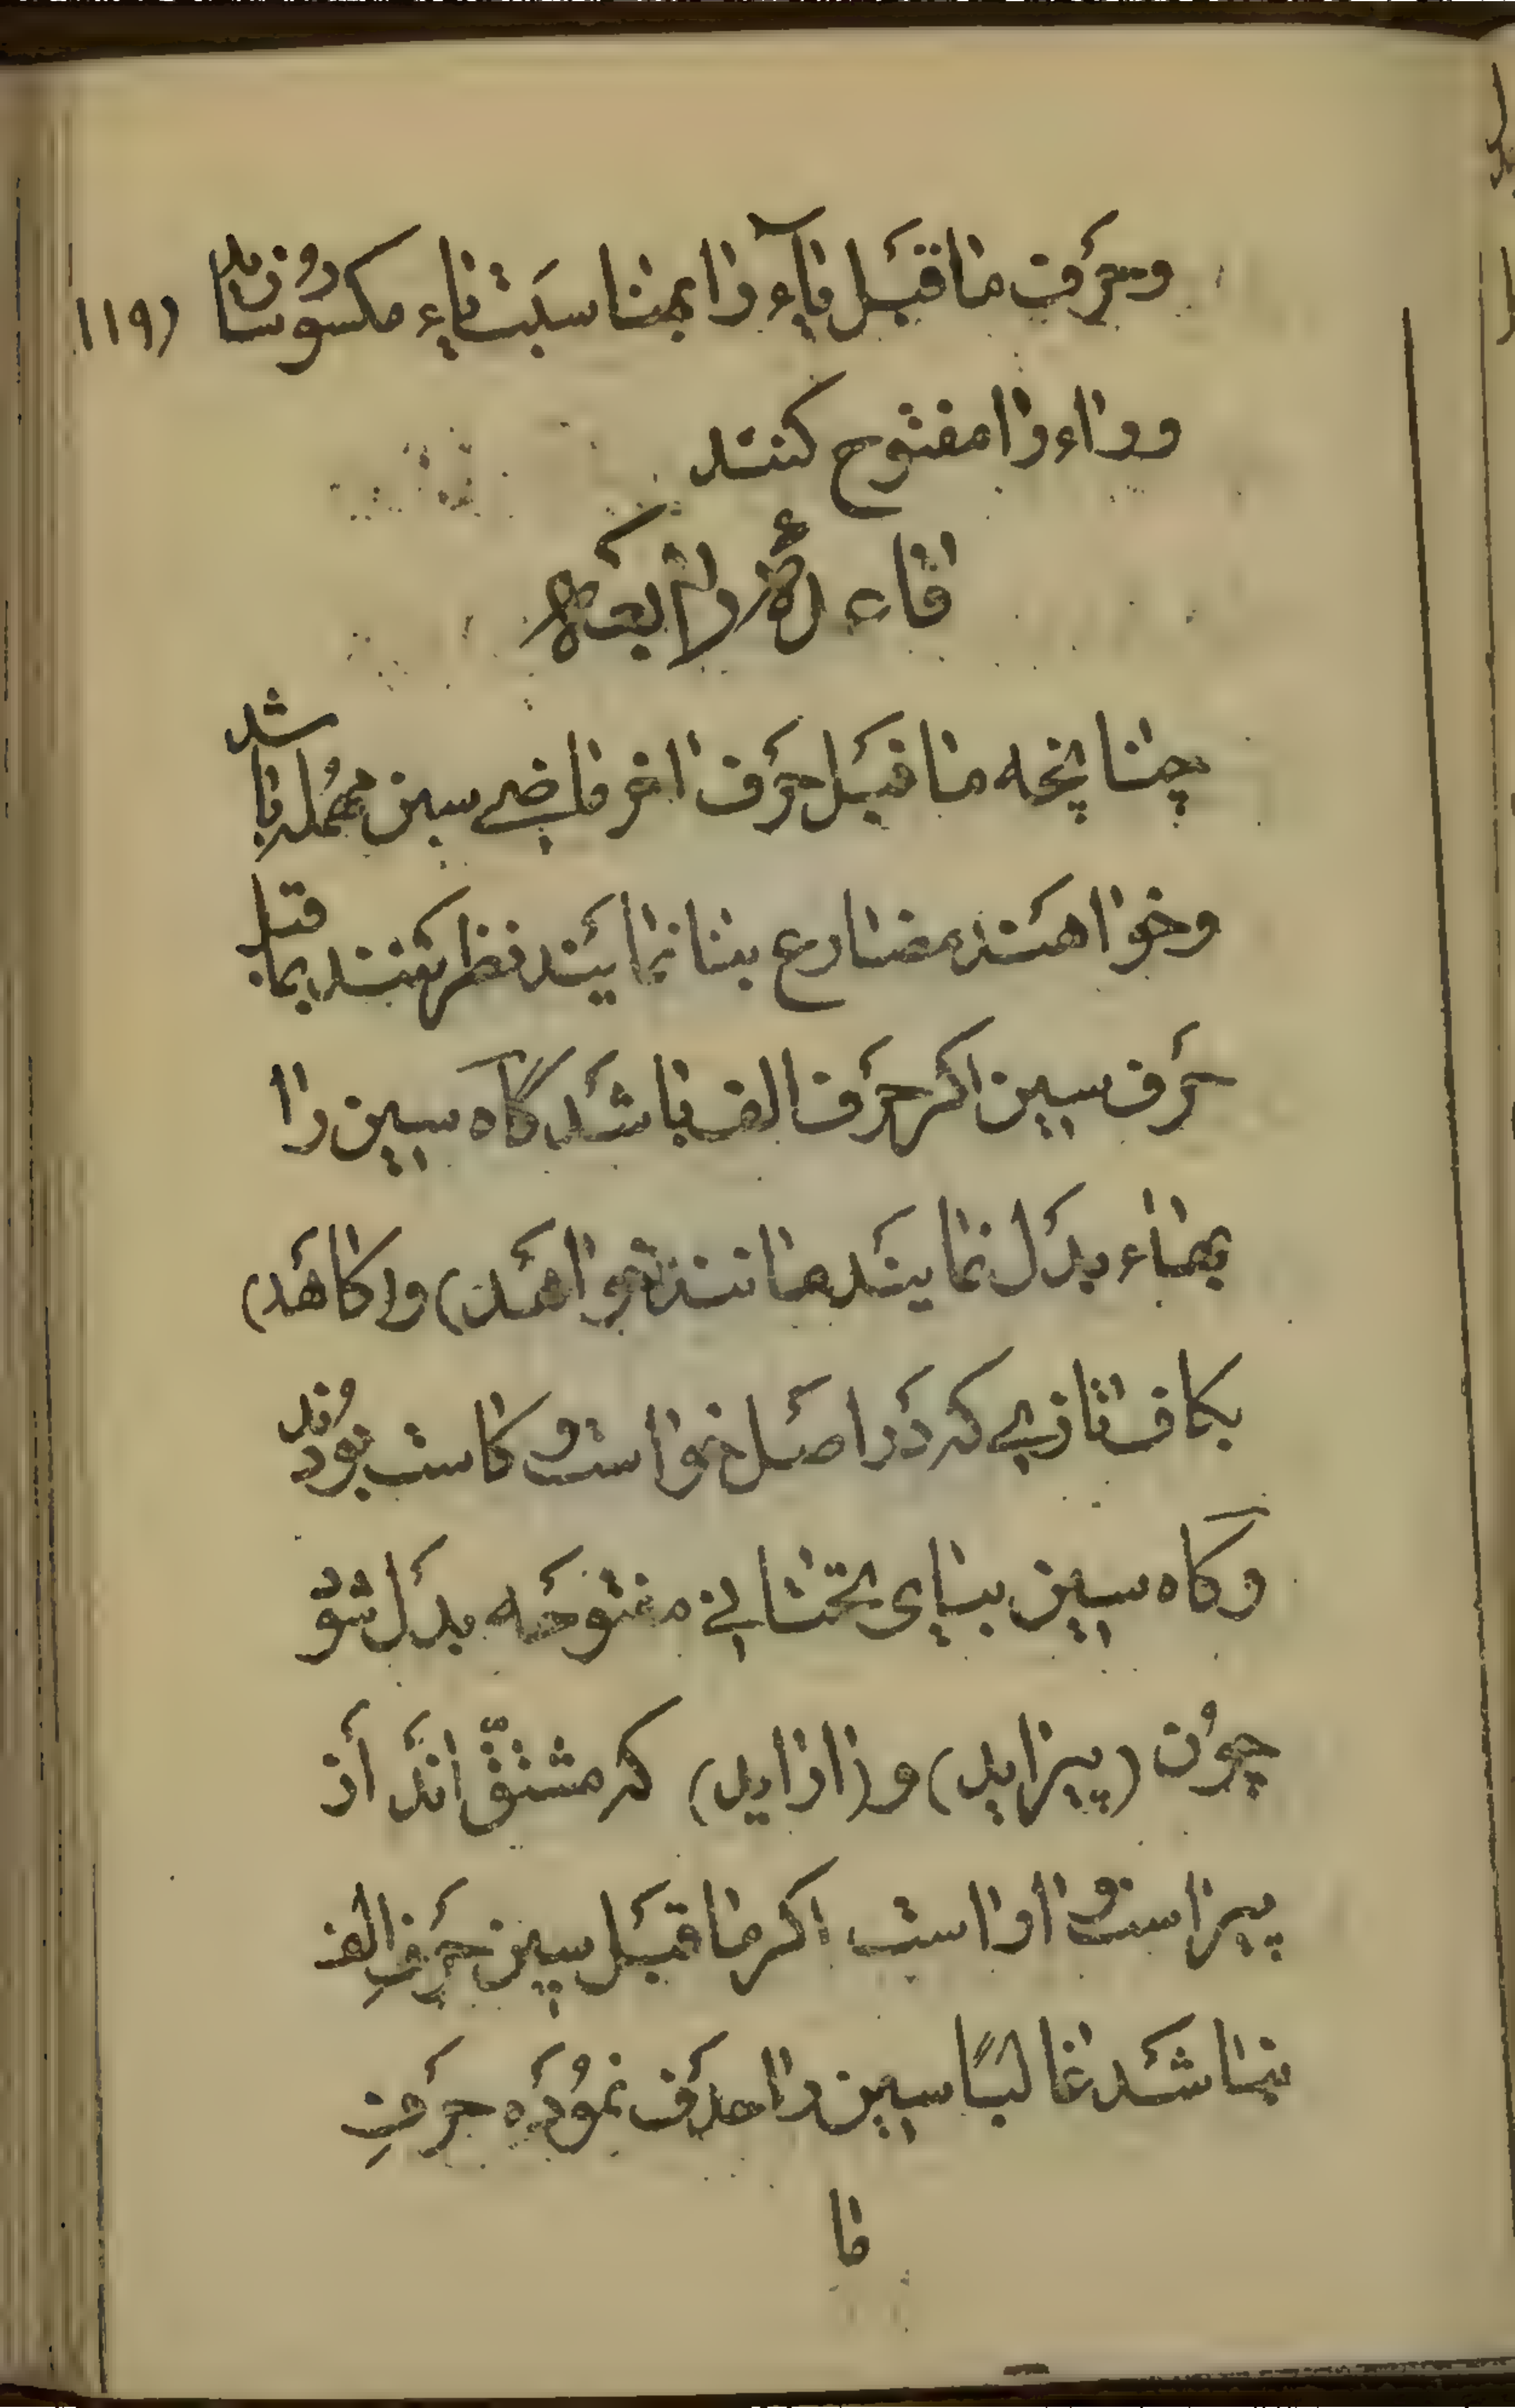 وحَرف ماقبَل یاء را بمناسبَت یاء مکسور سازند (۱۱۹
وراء را مفتوح کنند
قاعدهٔ رابعَه
چنانچه ماقبَل حَرف اخر ماضے سین مهُمله باشد
وخواهَند مضارع بنا نمایَند نظر کنند بماقبل
حَرف سین اکَر حَرف الف باشَد گاه سین را
بهاء بدَل نمایَند مانند (خواهَد) و (کاهَد)
بکاف تازی که دَر اصَل خواست و کاست بُودند
وکاه سین بیای تحتانی مفتوحَه بدَل شود
چُون (پیراید) و (اراید) که مشتقّ اندَ اَز
پیراست و اراست اکر ماقبَل سین حَرفِ الف
نباشَد غالبًا سین را حذَف نمُودَه حَرفِ
ما